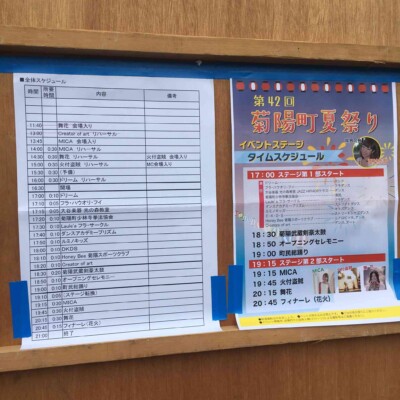 ■全体スケジュール
時間 所要時間 内容 備考
11:40 舞花 会場入り
13:00 Creator of art リハーサル
13:45 MICA 会場入り
14:00 0:30 MICA リハーサル
14:30 0:30 舞花 リハーサル 火付盗賊 会場入り
15:00 0:30 火付盗賊 リハーサル MC会場入り
15:30 0:30 (予備)
16:00 0:30 ドリーム リハーサル
16:30 開場
17:00 0:10 ドリーム
17:10 0:10 フラ・ハウオリ・フイ
17:20 0:10
17:30 0:10
17:40 0:10
17:50 0:10 ダンスアカデミープリズム
18:00 0:10 ルミノキッズ
18:10 0:10 DKDB
18:20 0:10 Honey Bee 菊陽スポーツクラブ
Creator of art
菊陽武蔵剣豪太鼓
オープニングセレモニー
町民総踊り
(ステージ転換)
19:15 0:30 MICA
19:45 0:30 火付盗賊
20:15 0:30 舞花
20:45 0:15 フィナーレ(花火)
21:00 終了
第42回
菊陽町夏祭り
イベントステージ
タイムスケジュール
17:00 ステージ第1部スタート
18:30 菊陽武蔵剣豪太鼓
18:50 オープニングセレモニー
19:00 町民総踊り
19:15 ステージ第2部スタート
19:15 MICA
19:45 火付盗賊
20:15 舞花
20:45 フィナーレ(花火)
MICA